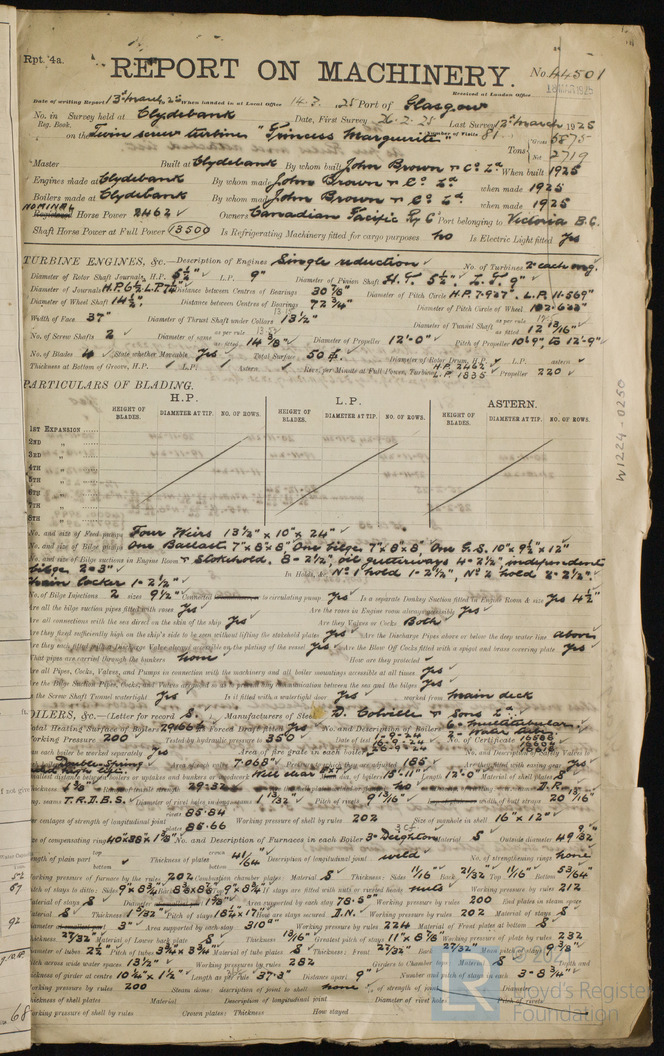 Rpt. 4a.
REPORT ON MACHINERY.
No. 44501
Received at London Office
Date of writing Report 13th March 25 When handed in at Local Office 14.3.25 Port of Glasgow
No. in Survey held at Clydebank Date, First Survey 26-2-25 Last Survey 12th March 1925
Reg. Book. Number of Visits 81
on the Twin screw turbine "Princess Marguerite"
Tons Gross 5875
Net 2719
Master Built at Clydebank By whom built John Brown & Co Ld When built 1925
Engines made at Clydebank By whom made John Brown & Co Ld when made 1925
Boilers made at Clydebank By whom made John Brown & Co Ld when made 1925
NOMINAL
Horse Power 2462 Owners Canadian Pacific Ry Co Port belonging to Victoria B.C.
Shaft Horse Power at Full Power 13500 Is Refrigerating Machinery fitted for cargo purposes no Is Electric Light fitted Yes
TURBINE ENGINES, &c.—Description of Engines Single reduction No. of Turbines 2 each eng.
Diameter of Rotor Shaft Journals, H.P. 5½" L.P. 9" Diameter of Pinion Shaft H.P. 5½". L.P. 9"
Diameter of Journals Distance between Centres of Bearings 30⅞ Diameter of Pitch Circle H.P. 7.927. L.P. 11.569"
Diameter of Wheel Shaft 14½" Distance between Centres of Bearings 72¾" Diameter of Pitch Circle of Wheel
Width of Face 37" Diameter of Thrust Shaft under Collars 13½" Diameter of Tunnel Shaft as per rule as fitted 12 13/16"
No. of Screw Shafts 2 Diameter of same as per rule as fitted 14⅜" Diameter of Propeller 12'-0" Pitch of Propeller 10'9", to 12'-9"
No. of Blades 4 State whether Moveable Yes Total Surface 50 Diameter of Rotor Drum, H.P. L.P. astern
Thickness at Bottom of Groove, H.P. L.P. Astern Revs. per Minute at Full Power, Turbine H.P. 2462 L.P. 1835 Propeller 220
PARTICULARS OF BLADING.
H.P. L.P. ASTERN.
HEIGHT OF BLADES. DIAMETER AT TIP. NO. OF ROWS. HEIGHT OF BLADES. DIAMETER AT TIP. NO. OF ROWS. HEIGHT OF BLADES. DIAMETER AT TIP. NO. OF ROWS.
1ST EXPANSION
2ND "
3RD "
4TH "
5TH "
6TH "
7TH "
8TH "
No. and size of Feed pumps Four Weirs 13½" x 10" x 24"
No. and size of Bilge pumps One Ballast 7"x8"x8" One bilge 7"x8"x8", One G.S. 10"x9½"x12"
No. and size of Bilge suctions in Engine Room & Stokehold. 8-2½", oil gutterways 4-2½", independent
bilge 2-3" In Holds, &c. No 1 hold 1-2½", No 2 hold 2-2½".
chain locker 1-2½"
No. of Bilge Injections 2 sizes 9½" Connected to circulating pump Yes Is a separate Donkey Suction fitted in Engine Room & size Yes 4½"
Are all the bilge suction pipes fitted with roses Yes Are the roses in Engine room always accessible Yes
Are all connections with the sea direct on the skin of the ship Yes Are they Valves or Cocks Both
Are they fixed sufficiently high on the ship's side to be seen without lifting the stokehold plates Yes Are the Discharge Pipes above or below the deep water line above
Are they each fitted with a Discharge Valve always accessible on the plating of the vessel Yes Are the Blow Off Cocks fitted with a spigot and brass covering plate Yes
What pipes are carried through the bunkers none How are they protected
Are all Pipes, Cocks, Valves, and Pumps in connection with the machinery and all boiler mountings accessible at all times Yes
Are the Bilge Suction Pipes, Cocks, and Valves arranged so as to prevent any communication between the sea and the bilges Yes
Is the Screw Shaft Tunnel watertight Yes Is it fitted with a watertight door Yes worked from main deck
BOILERS, &c.—(Letter for record S.) Manufacturers of Steel D. Colville & Sons Ld
Total Heating Surface of Boilers Is Forced Draft fitted Yes No. and Description of Boilers 6-multitubular,
Working Pressure 200 Tested by hydraulic pressure to 350 Date of test No. of Certificate
Can each boiler be worked separately Yes Area of fire grate in each boiler No. and Description of Safety Valves to
each boiler Double Spring and high lift. Area of each valve 7.068" Pressure to which they are adjusted 185 Are they fitted with easing gear Yes
Smallest distance between boilers or uptakes and bunkers or woodwork Well clear Mean dia. of boilers 15'-11" Length 12'-0" Material of shell plates S
Thickness no D.R.
long. seams T.R.D.B.S. Diameter of rivet holes in long. seams 1 13/32" Pitch of rivets 9 13/16" width of butt straps 20 13/16"
Per centages of strength of longitudinal joint rivets 85.84 plates 85.66 Working pressure of shell by rules 202 Size of manhole in shell 16" x 12"
Size of compensating ring 40"x38"x1⅜" No. and Description of Furnaces in each Boiler 3 Deighton Material S Outside diameter 49
Length of plain part Thickness of plates 41/64 Description of longitudinal joint weld No. of strengthening rings none
Working pressure of furnace by the rules 202 Combustion chamber plates: Material S Thickness: Sides 11/16 Back 21/32 Top 11/16 Bottom 53/64"
Pitch of stays to ditto: Sides 9"x8¾" Back 8⅞x8½" Top 9"x8¾" If stays are fitted with nuts or riveted heads nuts Working pressure by rules 212
Material of stays S Area supported by each stay 78.5 Working pressure by rules 200 End plates in steam space
Material S Thickness 1 5/32" Pitch of stays 18¼x17" How are stays secured D.N. Working pressure by rules 202 Material of stays S
3" Area supported by each stay 310 Working pressure by rules 224 Material of Front plates at bottom S
Thickness 27/32" Material of Lower back plate S Thickness 13/16" Greatest pitch of stays 11"x8⅞" Working pressure of plate by rules 232
Diameter of tubes 2½" Pitch of tubes 3¾"x3¾" Material of tube plates S Thickness: Front 27/32" Back 27/32" Mean pitch of stays 9⅜"
Pitch across wide water spaces 13½" Working pressures by rules 282 Girders to Chamber tops: Material S Depth and
thickness of girder at centre 10¼"x1½" Length as per rule 37.3" Distance apart 9" Number and pitch of stays in each 3-8¾"
Working pressure by rules 200 Steam dome: description of joint to shell none % of strength of joint Diameter
Thickness of shell plates Material Description of longitudinal joint Diameter of rivet holes Pitch of rivets
Working pressure of shell by rules Crown plates: Thickness How stayed
W1224-0250
Lloyd's Register
Foundation